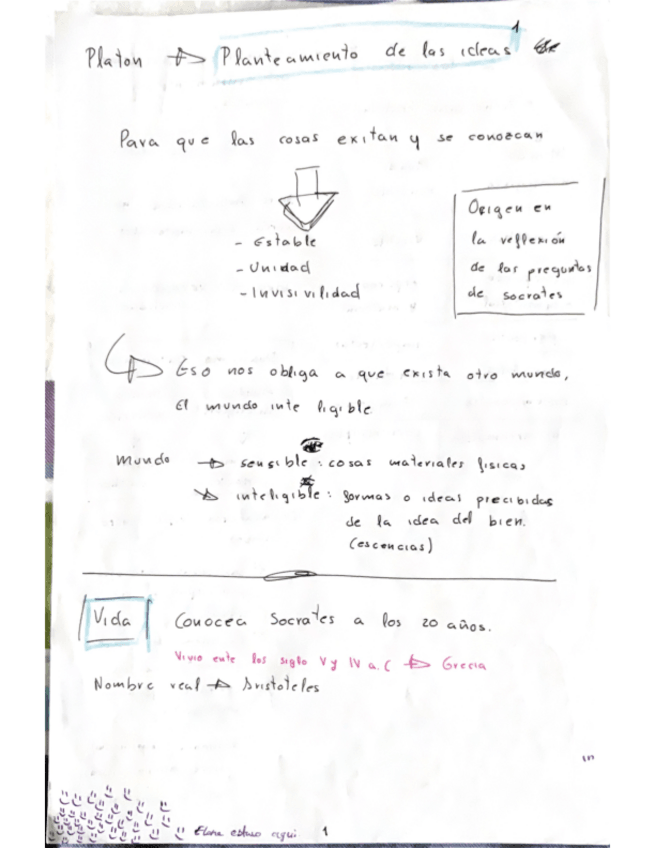 1
Platon → Planteamiento de las ideas
Para que las cosas exitan y se conozcan
- Estable
- Unidad
- Invisivilidad
Origen en
la reflexión
de las preguntas
de socrates
Eso nos obliga a que exista otro mundo,
El mundo inteligible
Mundo → sensible: cosas materiales fisicas
→ inteligible: formas o ideas precibidas
de la idea del bien.
(escencias)
Vida Conocea Socrates a los 20 años.
Vivio ente los siglo V y IV a.C → Grecia
Nombre real → Aristoteles
Elena estuvo aqui 1